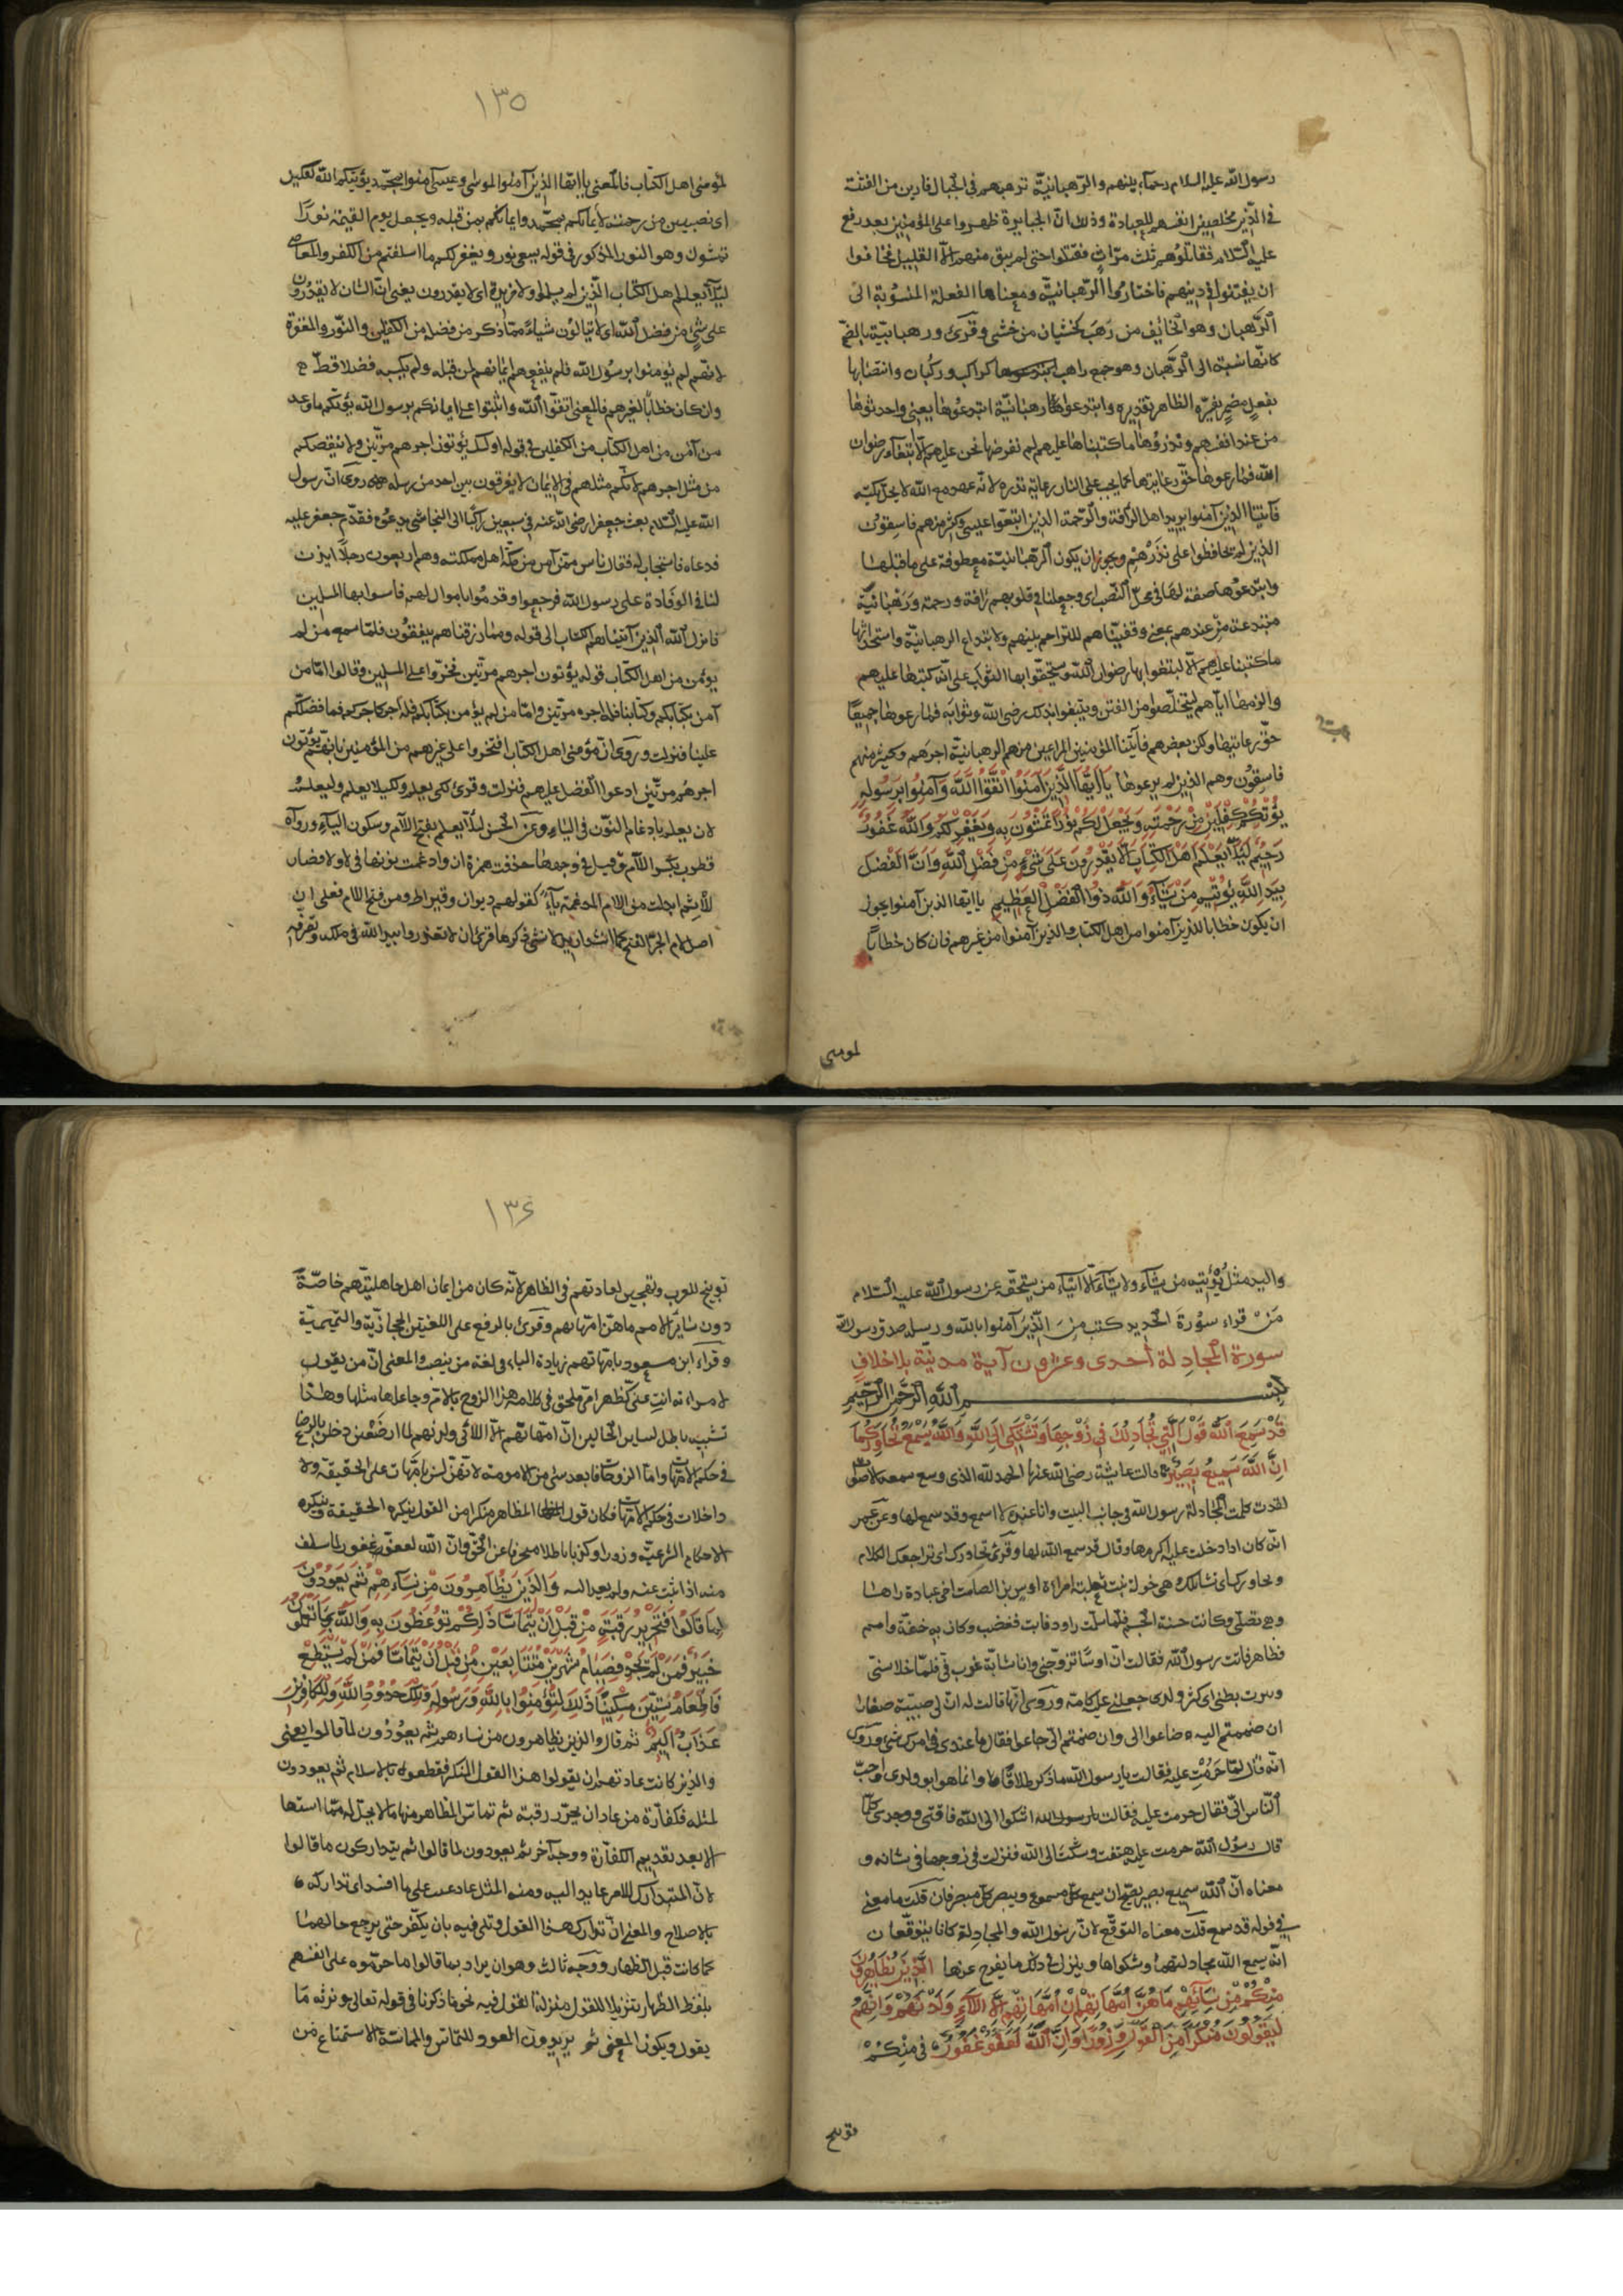 رسول الله عليه السلام رحماء بينهم والرهبانية ترهبهم في الجبال فارين من الفتنة
في الدين مخلصين انفسهم للعبادة وذلك ان الجبابرة ظهروا على المؤمنين بعد رفع
عليه السلام فقاتلوهم ثلث مرات فقتلوا حتى لم يبق منهم الا القليل فخافوا
ان يفتنوا في دينهم فاختاروا الرهبانية ومعناها الفعلة المنسوبة الى
الرهبان وهو الخائف من رهب كخشيان من خشى وقرئ ورهبانية بالضم
كانها نسبة الى الرهبان وهو جمع راهب كراكب وركبان وانتصابها
بفعل مضمر يفسره الظاهر تقديره وابتدعوا رهبانية ابتدعوها يعنى واحدثوها
من عند انفسهم ونذروها ما كتبناها عليهم لم نفرضها نحن عليهم الا ابتغاء رضوان
الله فما رعوها حق رعايتها كما يجب على الناذر رعاية نذره لانه عهد مع الله لا يحل نكثه
فآتينا الذين آمنوا يريد اهل الرأفة والرحمة الذين اتبعوا عيسى وكثير منهم فاسقون
الذين لم يحافظوا على نذرهم ويجوز ان يكون الرهبانية معطوفة على ما قبلها
وابتدعوها صفة لها في محل النصب اى وجعلنا في قلوبهم رأفة ورحمة ورهبانية
مبتدعة من عندهم بمعنى وفقناهم للتراحم بينهم ولابتداع الرهبانية واستحداثها
ما كتبنا عليهم الا ليبتغوا بها رضوان الله ويستحقوا بها الثواب على انه كتبها عليهم
والزمها اياهم ليتخلصوا من الفتن ويبتغوا بذلك رضى الله وثوابه فما رعوها جميعا
حق رعايتها ولكن بعضهم فآتينا المؤمنين المراعين منهم الرهبانية اجرهم وكثير منهم
فاسقون وهم الذين لم يرعوها يَا اَيُّهَا الَّذِينَ آمَنُوا اتَّقُوا اللَّهَ وَآمِنُوا بِرَسُولِهِ
يُؤْتِكُمْ كِفْلَيْنِ مِنْ رَحْمَتِهِ وَيَجْعَلْ لَكُمْ نُورًا تَمْشُونَ بِهِ وَيَغْفِرْ لَكُمْ وَاللَّهُ غَفُورٌ
رَحِيمٌ لِئَلَّا يَعْلَمَ اَهْلُ الْكِتَابِ اَلَّا يَقْدِرُونَ عَلَى شَيْءٍ مِنْ فَضْلِ اللَّهِ وَاَنَّ الْفَضْلَ
بِيَدِ اللَّهِ يُؤْتِيهِ مَنْ يَشَاءُ وَاللَّهُ ذُو الْفَضْلِ الْعَظِيمِ يا ايها الذين آمنوا يجوز
ان يكون خطابا للذين آمنوا من اهل الكتاب والذين آمنوا من غيرهم فان كان خطابا
لمومنى
١٣٥
لمؤمنى اهل الكتاب فالمعنى يا ايها الذين آمنوا بموسى وعيسى آمنوا بمحمد يؤتكم الله كفلين
اى نصيبين من رحمته لايمانكم بمحمد وايمانكم بمن قبله ويجعل يوم القيمة نورا
تمشون وهو النور المذكور في قوله يسعى نورو ويغفر لكم ما اسلفتم من الكفر والمعاصى
لئلا يعلم اهل الكتاب الذين لم يسلموا ولا مزيدة اى لا يقدرون يعنى ان الشان لا يقدرون
على شئ من فضل الله اى لا ينالون شيئا مما ذكر من فضله من الكفلين والنور والمغفرة
لانهم لم يؤمنوا برسول الله فلم ينفعهم ايمانهم لمن قبله ولم يكسبه فضلا قط
وان كان خطابا لغيرهم فالمعنى اتقوا الله واثبتوا على ايمانكم برسول الله يؤتكم ما وعد
من آمن من اهل الكتاب من الكفلين في قوله اولئك يؤتون اجرهم مرتين ولا ينقصكم
من مثل اجرهم لانكم مثلهم في الايمان لا يفرقون بين احد من رسله روى ان رسول
الله عليه السلام بعث جعفرا رضى الله عنه في سبعين راكبا الى النجاشى يدعوه فقدم جعفر عليه
فدعاه فاستجاب له فقال ناس ممن آمن من اهل مملكته وهم اربعون رجلا ايذن
لنا في الوفادة على رسول الله فرجعوا وقدموا باموال لهم فآسوا بها المسلمين
فانزل الله الذين آتيناهم الكتاب الى قوله ومما رزقناهم ينفقون فلما سمع من لم
يؤمن من اهل الكتاب قوله يؤتون اجرهم مرتين فخروا على المسلمين وقالوا اما من
آمن بكتابكم وكتابنا فله اجره مرتين واما من لم يؤمن بكتابكم فله اجر كاجركم فما فضلكم
علينا فنزلت وروى ان مؤمنى اهل الكتاب افتخروا على غيرهم من المؤمنين بانهم يؤتون
اجرهم مرتين ادعوا الفضل عليهم فنزلت وقرئ لكى يعلم ولكيلا يعلم وليعلم
لان يعلم بادغام النون في الياء وعن الحسن ليلا يعلم بفتح اللام وسكون الياء ورواه
قطرب بكسر اللام وقيل في وجهها حذفت همزة ان وادغمت نونها في لام لا فصار
للا ثم ابدلت من اللام المدغمة ياء كقولهم ديوان وقيراط ومن فتح اللام فعلى ان
اصل لام الجر الفتح كما انشد اريد لانسى ذكرها قرئ ان لا يقدروا بيد الله في ملكه وتصرفه
واليد مثل يؤتيه من يشاء ولا يشاء الا ايتاء من يستحقه عن رسول الله عليه السلام
مَنْ قراء سورة الحديد كتب من الذين آمنوا بالله ورسله صدق رسول الله
سورة المجادلة أحدى وعشرون آية مدنية بلا اخلاف
بسم الله الرحمن الرحيم
قَدْ سَمِعَ اللَّهُ قَوْلَ الَّتِي تُجَادِلُكَ فِي زَوْجِهَا وَتَشْتَكِي اِلَى اللَّهِ وَاللَّهُ يَسْمَعُ تَحَاوُرَكُمَا
اِنَّ اللَّهَ سَمِيعٌ بَصِيرٌ قالت عايشة رضى الله عنها الحمد لله الذى وسع سمعه الاصوات
لقد كلمت المجادلة رسول الله في جانب البيت وانا عنده لا اسمع وقد سمع لها وعن عمر
انه كان اذا دخلت عليه اكرمها وقال قد سمع الله لها وقرئ تحاورك اى تراجعك الكلام
وتحاورك اى تسائلك وهى خولة بنت ثعلبة امراة اوس بن الصامت اخى عبادة راها
وهى تصلى وكانت حسنة الجسم فلما سلمت راودها فابت فغضب وكان به خفة ولمم
فظاهر فاتت رسول الله فقالت ان اوسا تزوجنى وانا شابة مرغوب في فلما خلا سنى
ونثرت بطنى اى كثر ولدى جعلنى عليه كامه وروى انها قالت له ان لى صبية صغارا
ان ضممتهم اليه ضاعوا الى وان ضممتهم الى جاعوا فقال ما عندى في امرك شئ وروى
انه قال لها حرمت عليه فقالت يا رسول الله ما ذكر طلاقا وانما هو ابو ولدى واحب
الناس الى فقال حرمت عليه فقالت يا رسول الله اشكوا الى الله فاقتى ووجدى كلما
قال رسول الله حرمت عليه هتفت وشكت الى الله فنزلت في زوجها في شانه و
معناه ان الله سميع بصير يصح ان يسمع كل مسموع ويبصر كل مبصر فان قلت ما معنى
في قوله قد سمع قلت معناه التوقع لان رسول الله والمجادلة كانا يتوقعان
ان يسمع الله مجادلتهما وشكواها وينزل في ذلك ما يفرج عنها الَّذِينَ يُظَاهِرُونَ
مِنْكُمْ مِنْ نِسَائِهِمْ مَا هُنَّ اُمَّهَاتِهِمْ اِنْ اُمَّهَاتُهُمْ اِلَّا اللَّائِي وَلَدْنَهُمْ وَاِنَّهُمْ
لَيَقُولُونَ مُنْكَرًا مِنَ الْقَوْلِ وَزُورًا وَاِنَّ اللَّهَ لَعَفُوٌّ غَفُورٌ في مِنْكُمْ
توبيخ
١٣٦
توبيخ للعرب وتهجين لعادتهم في الظاهر لانه كان من ايمان اهل جاهليتهم خاصة
دون سائر الامم ما هن امهاتهم وقرئ بالرفع على اللغتين الحجازية والتميمية
وقراء ابن مسعود بامهاتهم بزيادة الباء في لغة من ينصب والمعنى ان من يقول
لامراته انت على كظهر امى ملحق في كلامه هذا الزوج بالام وجاعلها مثلها وهذا
تشبيه باطل لتباين الحالين ان امهاتهم الا اللائى ولدنهم لما ارضعن دخلن بالرضاع
في حكم الامهات واما الزوجات فابعد شئ من الامومة لانهن لسن بامهات على الحقيقة ولا
داخلات في حكم الامهات فكان قول المظاهر منكرا من القول ينكره الحقيقة وينكره
الاحكام الشرعية وزورا وكذبا باطلا منحرفا عن الحق وان الله لعفو غفور لما سلف
منه اذا تيب عنه ولم يعد اليه وَالَّذِينَ يُظَاهِرُونَ مِنْ نِسَائِهِمْ ثُمَّ يَعُودُونَ
لِمَا قَالُوا فَتَحْرِيرُ رَقَبَةٍ مِنْ قَبْلِ اَنْ يَتَمَاسَّا ذَلِكُمْ تُوعَظُونَ بِهِ وَاللَّهُ بِمَا تَعْمَلُونَ
خَبِيرٌ فَمَنْ لَمْ يَجِدْ فَصِيَامُ شَهْرَيْنِ مُتَتَابِعَيْنِ مِنْ قَبْلِ اَنْ يَتَمَاسَّا فَمَنْ لَمْ يَسْتَطِعْ
فَاِطْعَامُ سِتِّينَ مِسْكِينًا ذَلِكَ لِتُؤْمِنُوا بِاللَّهِ وَرَسُولِهِ وَتِلْكَ حُدُودُ اللَّهِ وَلِلْكَافِرِينَ
عَذَابٌ اَلِيمٌ ثم قال والذين يظاهرون من نسائهم ثم يعودون لما قالوا يعنى
والذين كانت عادتهم ان يقولوا هذا القول المنكر فقطعوه بالاسلام ثم يعودون
لمثله فكفارة من عاد ان يحرر رقبة ثم تماس المظاهر منها لا يحل له مماستها
الا بعد تقديم الكفارة ووجه آخر ثم يعودون لما قالوا ثم يتداركون ما قالوا
لان المتدارك للامر عايد اليه ومنه المثل عاد غيث على ما افسد اى تداركه
بالاصلاح والمعنى ان تدارك هذا القول وتلافيه بان يكفر حتى يرجع حالهما
كما كانت قبل الظهار ووجه ثالث وهو ان يراد بما قالوا ما حرموه على انفسهم
بلفظ الظهار تنزيلا للقول منزلة المقول فيه نحو ما ذكرنا في قوله تعالى ونرثه ما
يقول ويكون المعنى ثم يريدون العود للتماس والمماسة الاستمتاع من